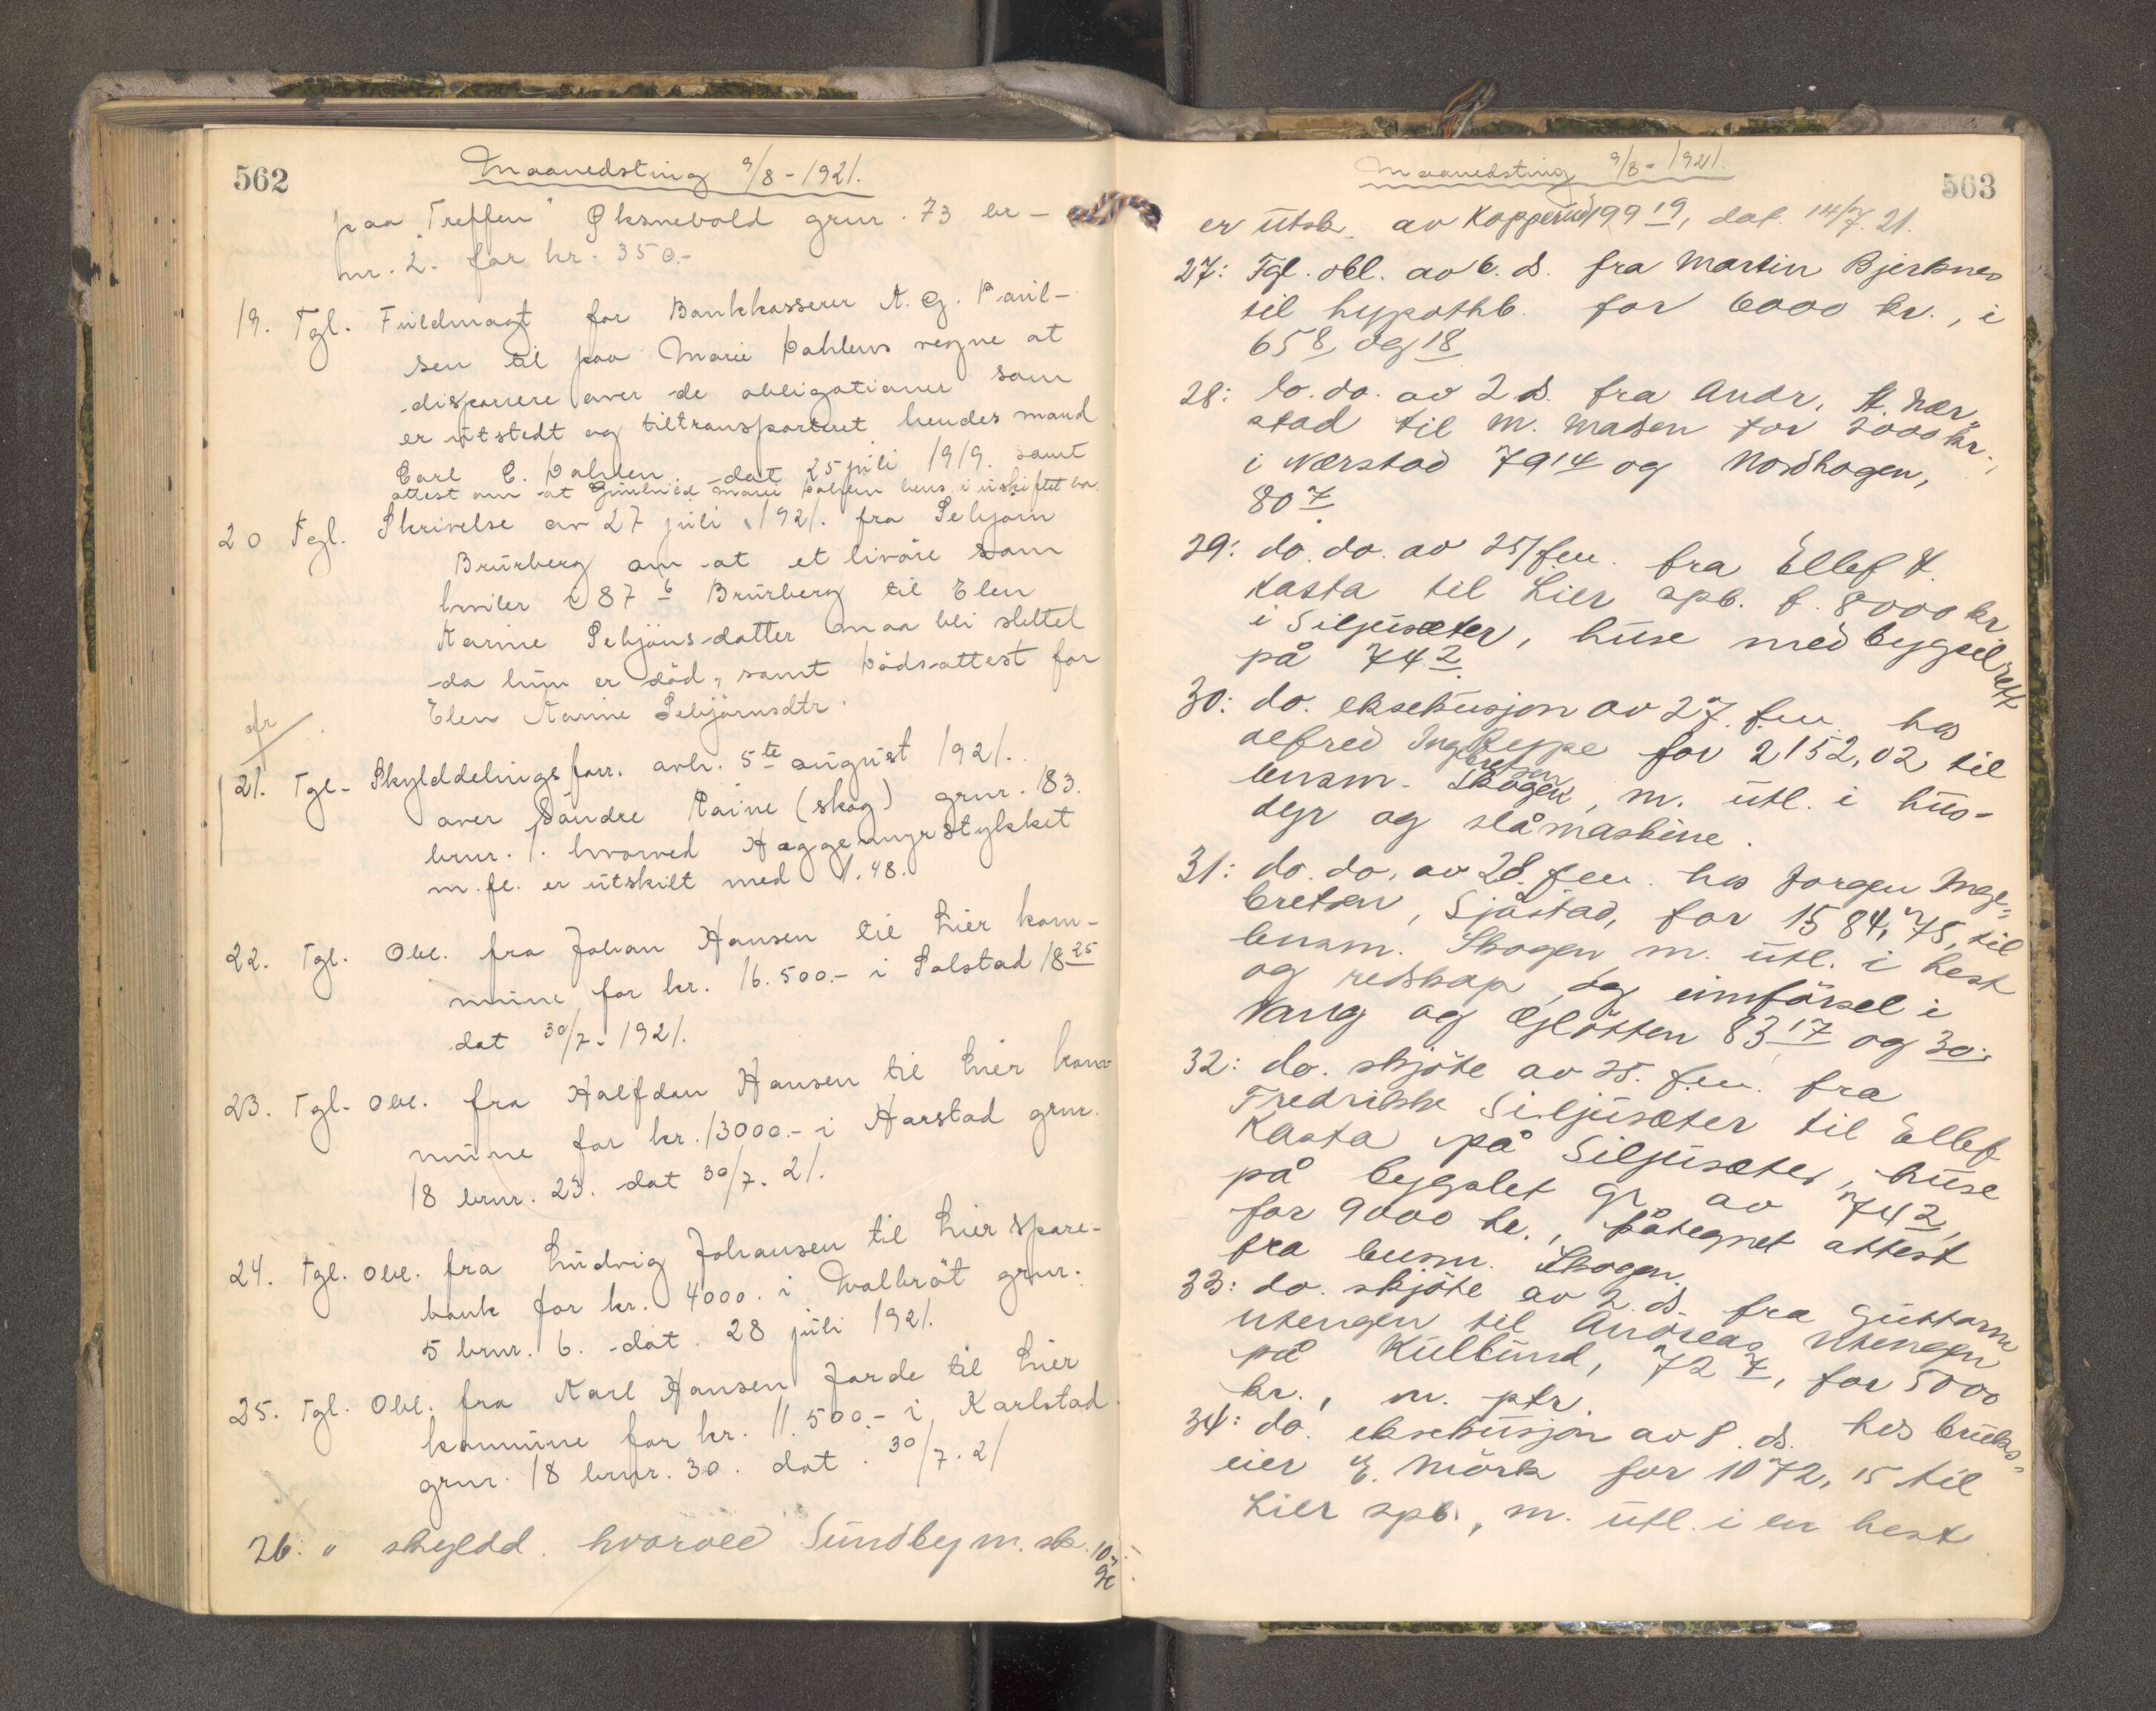 562
Maanedsting 9/8 - 1921.
paa "Treffen" Øksnevold grnr. 73 br-
nr. 2. for kr. 350.-
19. Tgl. Fuldmagt for Bankkasserer A. G. Paul-
sen til paa Marie Dahlens vegne at
disponere over de obligationer som
er utstedt og tiltransporteret hendes mand
Carl C. Dahlen. dat 25 juli 1919. samt
attest om at Gunhild Marie Dahlen hens. i uskiftet bo.
20 Tgl. Skrivelse av 27 juli 1921. fra Sebjørn
Brurberg om at et livøre som
hviler i 87 6 Brurberg til Elen
Karine Sebjönsdatter maa bli slettet
da hun er död, samt Dödsattest for
Elen Karine Sebjörnsdtr.
afr
21. Tgl. Skylddelingsforr. avh. 5te august 1921.
over Söndre Paine (skog) grnr. 183.
brnr. 1. hvorved Haggemyrstykket
m. fl. er utskilt med 1.48.
22. Tgl. Obl. fra Johan Hansen til Lier kom-
mune for kr. 16.500.- i Solstad 18 25
dat 30/7 - 1921.
23. Tgl. Obl. fra Halfdan Hansen til Lier kom-
mune for kr. 13000.- i Harstad grnr.
18 brnr. 23. dat 30/7. 21.
24. Tgl. Obl. fra Ludvig Johansen til Lier spare-
bank for kr. 4000. i Walbröt grnr.
5 brnr. 6. dat. 28 juli 1921.
25. Tgl. Obl. fra Karl Hansen Jorde til Lier
kommune for kr. 11.500.- i Karlstad
grnr. 18 brnr. 30. dat. 30/7. 21
26. " skyldd. hvorved Sundby m. sk. 10
563
Maanedsting 9/8 - 1921.
er utsk. av Kopperud 199 19, dat. 14/7. 21.
27: Tgl. obl. av 6. d. fra Martin Bjerknes
til hypothb. for 6000 kr., i
65 8 og 18
28: do. do. av 2 d. fra Andr. H. Nær-
stad til M. Madsen for 2000 kr.,
i Nærstad 79 14 og Nordhagen,
80 7.
29: do. do. av 25/f.m. fra Ellef H.
Kasta til Lier spb. f. 8000 kr.
i Siljusæter, huse med bygselrett
på 74 2.
30: do. eksekusjon av 27. f.m. hos
Alfred Ingebretsen Reppe for 2152,02 til
lensm. Skogen, m. utl. i hus-
dyr og slåmaskine.
31: do. do. av 28. f.m. hos Jørgen Inge-
bretsen, Sjåstad, for 1584,75, til
lensm. Skogen m. utl. i hest
og redskap, og innförsel i
Vang og Gjlötten 83 17 og 30.
32: do. skjöte av 25. f.m. fra
Fredrikke Siljusæter til Ellef
Kasta på Siljusæter, huse
på bygslet gr. av 74 2,
for 9000 kr., påtegnet attest
fra lensm. Skogen.
33: do. skjöte av 2. d. fra Guttorm
Utengen til Andreas Utengen
på Kulbund, 72 7, for 5000
kr., m. ptr.
34: do. eksekusjon av 8. d. hos bruks-
eier E. Mörk for 1072,15 til
Lier spb., m. utl. i en hest